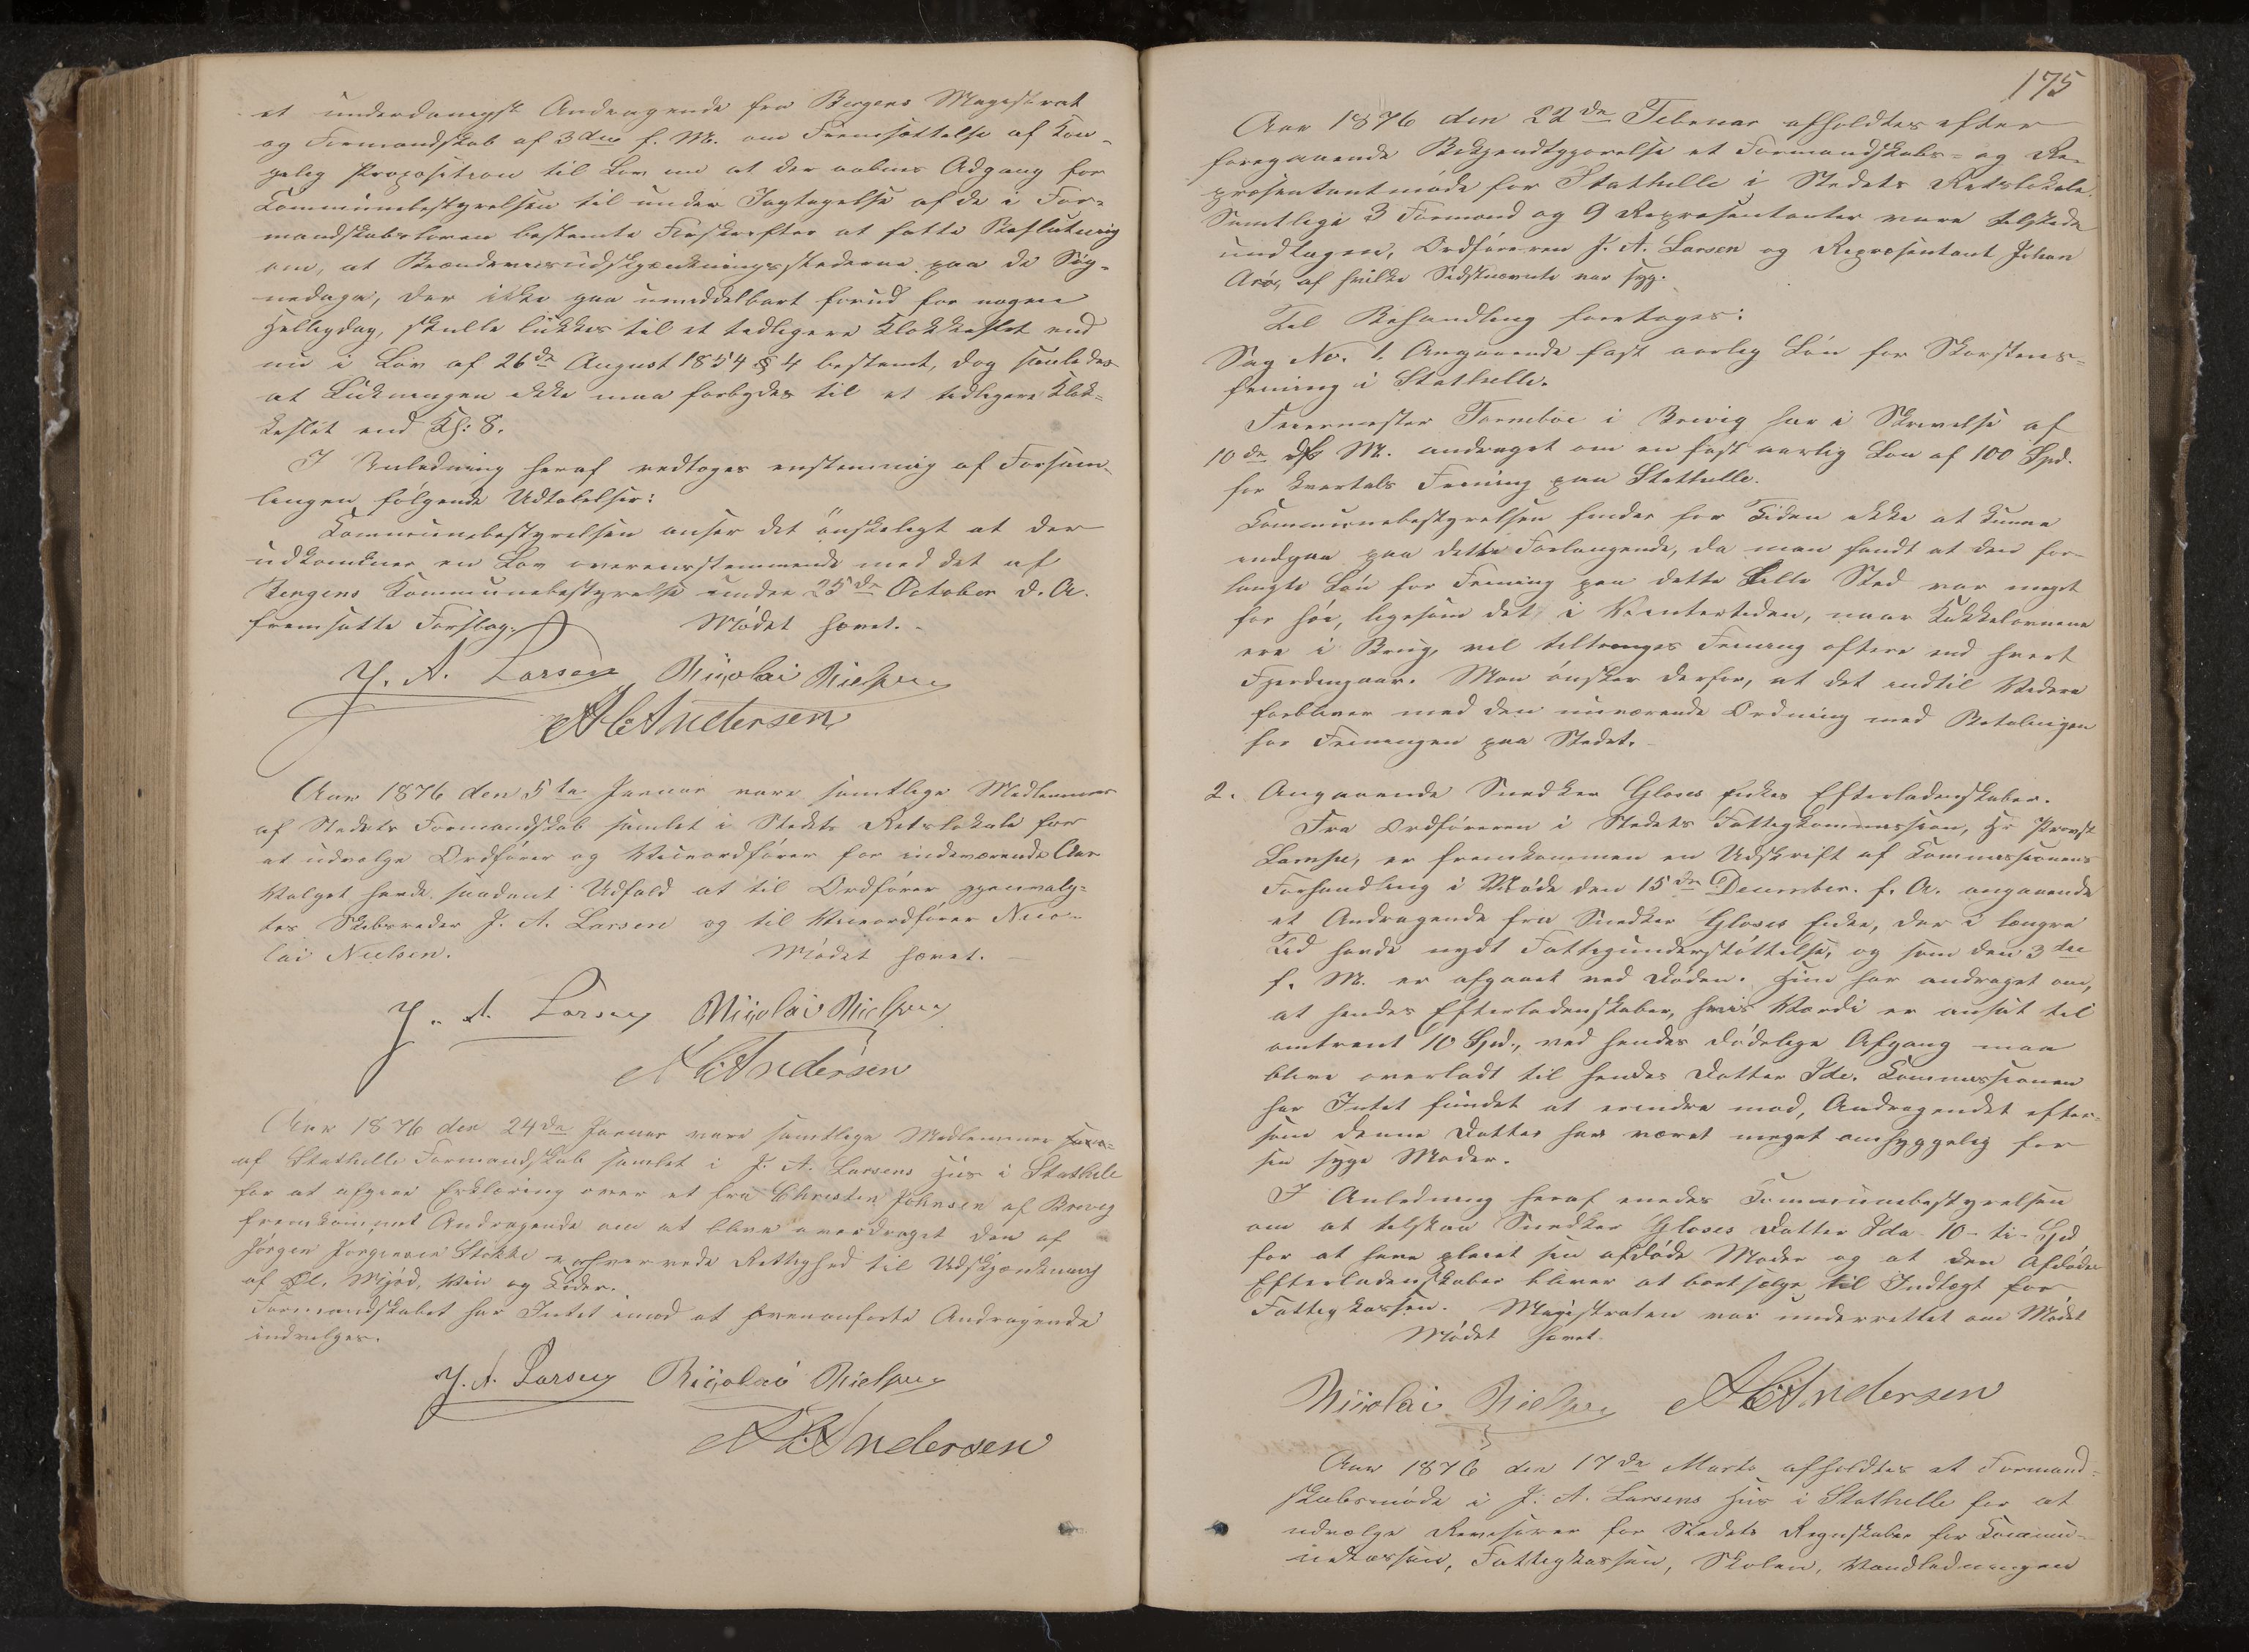 et underdanigst Andragende fra Bergens Magistrat
og Formandskab af 3die f. M. om Fremsættelse af Kon-
gelig Proposition til Lov om at der aabnes Adgang for
Communebestyrelsen til under Iagttagelse af de i For-
mandskabsloven bestemte Forskrifter at fatte Beslutning
om, at Brændeviinsudskjænkningsstederne paa de Søg-
nedage, der ikke gaa umiddelbart forud for nogen
Helligdag, skulle lukkes til et tidligere Klokkeslet end
nu i Lov af 26de August 1854 § 4 bestemt, dog saaledes
at Lukningen ikke maa forbydes til et tidligere Klok-
keslet end Kl: 8.
I Anledning heraf vedtoges enstemmig af Forsam-
lingen følgende Udtalelser:
Kommunebestyrelsen anser det ønskeligt at der
udkommer en Lov overensstemmende med det af
Bergens Kommunebestyrelse under 25de October d. A.
fremsatte Forslag. Mødet hævet. -
J. A. Larsen Nicolai Nielsen
A C Andersen
Aar 1876 den 5te Januar vare samtlige Medlemmer
af Stedets Formandskab samlet i Stedets Retslokale for
at udvælge Ordfører og Viceordfører for indeværende Aar
Valget havde saadant Udfald at til Ordfører gjenvalg-
tes Skibsreder J. A. Larsen og til Viceordfører Nico-
lai Nielsen. Mødet hævet. -
J. A. Larsen Nicolai Nielsen
A C Andersen
Aar 1876 den 24de Januar vare samtlige Medlemmer
af Stathelle Formandskab samlet i J. A. Larsens Hus i Stathelle
for at afgive Erklæring over et fra Christen Johnsen af Brevig
fremkommet Andragende om at blive overdraget den af
Jørgen Jørgensen Stokke erhvervede Rettighed til Udskjænkning
af Øl, Mjød, Vin og Cider.
Formandskabet har Intet imod at foranførte Andragende
indvilges.
J. A. Larsen Nicolai Nielsen
A C Andersen
175
Aar 1876 den 22de Februar afholdtes efter
foregaaende Bekjendtgjørelse et Formandskabs- og Re-
præsentantmøde for Stathelle i Stedets Retslokale.
Samtlige 3 Formænd og 9 Repræsentanter vare tilstede
undtagen, Ordføreren J. A. Larsen og Repræsentant Johan
Arø, af hvilke Sidstnævnte var syg.
Til Behandling foretoges:
Sag No. 1. Angaaende fast aarlig Løn for Skorstens-
feining i Stathelle.
Feiermester Tormboe i Brevig har i Skrivelse af
10de ds M. andraget om en fast aarlig Løn af 100 Spd.
for Kvartals Feining paa Stathelle.
Communebestyrelsen finder for Tiden ikke at kunne
indgaa paa dette Forlangende, da man fandt at den for-
langte Løn for Feining paa dette lille Sted var meget
for høi, ligesom det, i Vintertiden, naar Kakkelovnene
ere i Brug, vel tiltrænges Feining oftere end hvert
Fjerdingaar. Man ønsker derfor, at det indtil Videre
forbliver med den nuværende Ordning med Betalingen
for Feiningen paa Stedet. -
2. Angaaende Snedker Gloses Enkes Efterladenskaber.
Fra Ordføreren i Stedets Fattigkommission, Hr Provst
Lampe, er fremkommen en Udskrift af Kommissionens
Forhandling i Møde den 15de December f. A. angaaende
et Andragende fra Snedker Gloses Enke, der i længre
Tid havde nydt Fattigunderstøttelse, og som den 3die
f. M. er afgaaet ved Døden. Hun har andraget om,
at hendes Efterladenskaber, hvis Værdi er ansat til
omtrent 10 Spd., ved hendes dødelige Afgang maa
blive overladt til hendes Datter Ida. Kommissionen
har Intet fundet at erindre mod, Andragendet efter-
som denne Datter har været meget omhyggelig for
sin syge Moder.
I Anledning heraf enedes Communebestyrelsen
om at tilstaa Snedker Gloses Datter Ida 10 - ti - Spd
for at have pleiet sin afdøde Moder og at den Afdødes
Efterladenskaber bliver at bortsælge til Indtægt for
Fattigkassen. Magistraten var underrettet om Mødet
Mødet hævet.
Nicolai Nielsen A C Andersen
Aar 1876 den 17de Marts afholdtes et Formand-
skabsmøde i J. A. Larsens Hus i Stathelle for at
udvælge Revisorer for Stedets Regnskaber for Commu-
nekassen, Fattigkassen, Skolen, Vandledningen